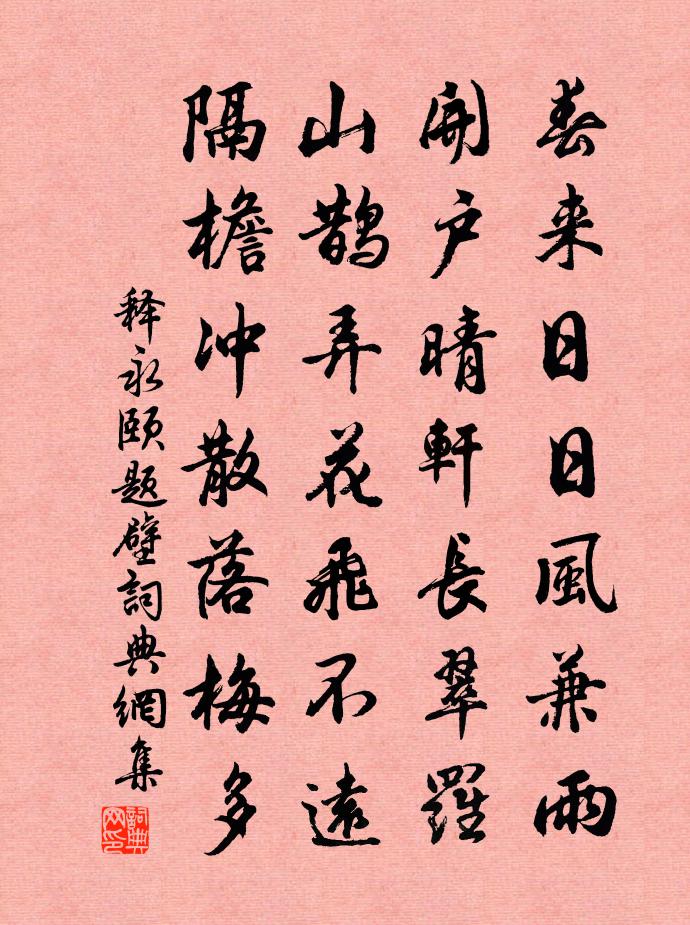 春来日日風兼雨
開户晴軒長翠羅
山鹊弄花飛不遠
隔檐冲散落梅多
释永颐题壁詞典網集
詞典网印